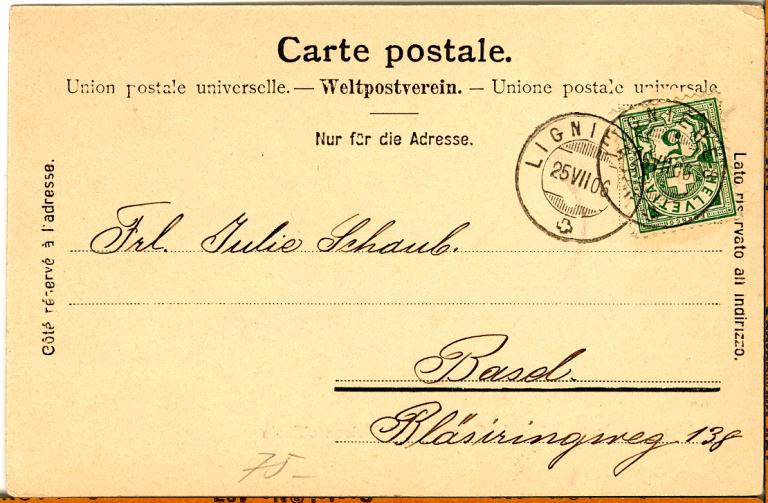 Carte postale.
Union postale universelle. — Weltpostverein. — Unione postale universale
Nur für die Adresse.
Côté réservé à l'adresse.
Lato riservato all indirizzo.
LIGNIÈRES
25 VII 06
5
HELVETIA
Frl. Julie Schaub.
Basel.
Bläsiringweg 138
75-